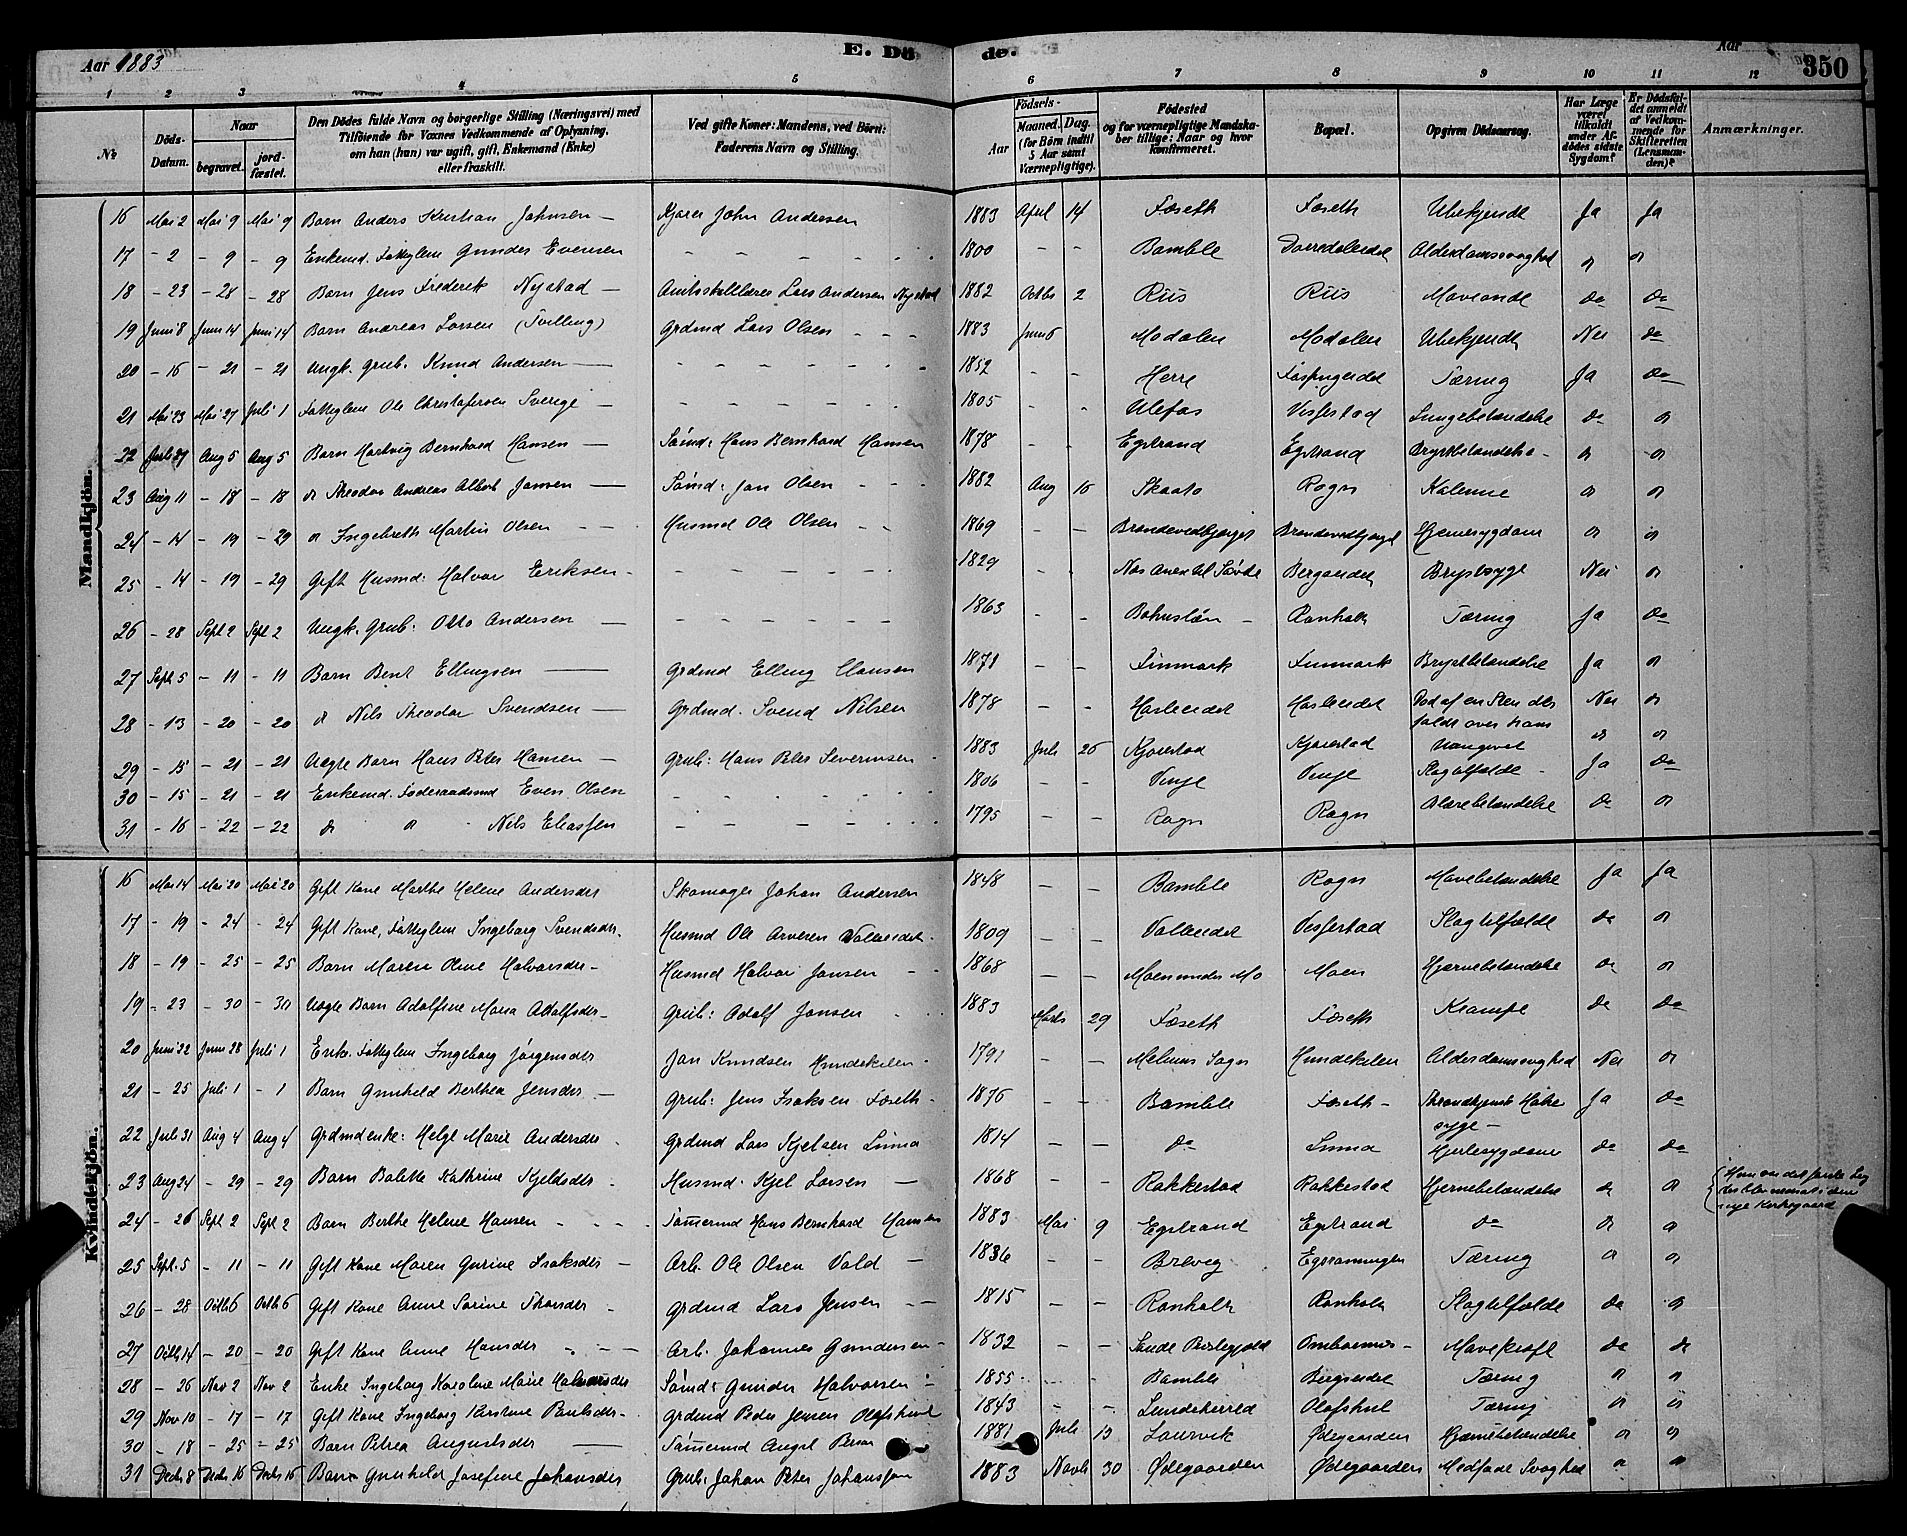 Aar 1883
E. Döde.
Aar
350
1 2 3 4 5 6 7 8 9 10 11 12
№
Döds-Datum.
Naar
begravet.
jordfæstet.
Den Dödes fulde Navn og borgerlige Stilling (Næringsvei) med Tilföiende for Voxnes Vedkommende af Oplysning, om han (hun) var ugift, gift, Enkemand (Enke) eller fraskilt.
Ved gifte Koner: Mandens, ved Börn: Faderens Navn og Stilling.
Födsels-
Aar
Maaned. Dag.
(for Börn indtil 5 Aar samt Værnepligtige).
Födested og for værnepligtige Mandskaber tillige: Naar og hvor konfirmeret.
Bopæl.
Opgiven Dödsaarsag.
Har Læge været tilkaldt under Afdödes sidste Sygdom?
Er Dödsfaldet anmeldt af Vedkommende for Skifteretten (Lensmanden)?
Anmærkninger.
Mandkjön.
16 Mai 2 Mai 9 Mai 9 Barn Anders Kristian Johnsen – John Andersen 1883 April 14 Foseth Foseth Ubekjendt Ja Ja
17 – 2 – 9 – 9 Enkemd. Fattiglem Gunder Evensen – – – – 1800 – – Bamble Alderdomssvaghed
18 – 23 – 28 – 28 Barn Jens Frederik Nystad – Lars Andersen Nystad 1882 Octbr 2 Riis Riis Maveonde do do
19 Juni 8 Juni 14 Juni 14 Barn Andreas Larsen (Tvilling) Grdmd Lars Olsen – – – 1883 Juni 6 Modalen Modalen Ubekjendt Nei do
20 – 16 – 21 – 21 Ungk. Grub. Knud Andersen – – – – – – 1852 – – Herre Tæring Ja do
21 Mai 23 Mai 27 Juli 1 Fattiglem Ole Christofersen Sverige – – – – – – 1805 – – Ulefos Vissestad Lungebetændelse do "
22 Juli 29 Aug 5 Aug 5 Barn Hartvig Bernhard Hansen – Sømd: Hans Bernhard Hansen 1878 – – Egstrand Egstrand Brystbetændelse – " "
23 Aug 11 – 18 – 18 " Theodor Andreas Albert Jansen – Sømd: Jan Olsen – – – 1882 Aug 16 Skaato Rogn Kolerine " "
24 – 14 – 19 – 29 " Ingebreth Martin Olsen – – Husmd Ole Olsen – – 1869 – – "
25 – 14 – 19 – 29 Gift Husmd: Halvor Eriksen – – – – – – 1829 – – Brystsyge Nei "
26 – 28 Sept 2 Sept 2 Ungk. Grub: Otto Andersen – – – – – – 1863 – – Bahuslän – Ronholt Tæring Ja do
27 Sept 5 – 11 – 11 Barn Bent Ellingsen – Grdmd Elling Clausen 1871 – – Finmark Finmark Brystbetændelse Ja "
28 – 13 – 20 – 20 " Nils Theodor Svendsen – Grdmd. Svend Nilsen 1878 – – Hasleeidet Hasleeidet Død af en Sten der faldt over ham Nei "
29 – 15 – 21 – 21 Uegte Barn Hans Peter Hansen – Grub: Hans Peter Severinsen 1883 Juli 26 Kjørstad Kjørstad " "
30 – 15 – 21 – 21 Enkemd. Føderaadsmd Even Olsen – – – – – 1806 – – Vinje Vinje Slagtilfælde – Ja do
31 – 16 – 22 – 22 do " Nils Eliassen – – – – – 1795 – – Rogn Rogn Blærebetændelse do "
Kvindekjön.
16 Mai 14 Mai 20 Mai 20 Gift Kone Marthe Helene Andersdr Skomager Johan Andersen 1848 – – Bamble Rogn Mavebetændelse Ja Ja
17 – 19 – 24 – 24 Gift Kone, Fattiglem Ingeborg Svendsdr. Husmd Ole Arvesen Valleeidet 1809 – – Valleeidet Vissestad Slagtilfælde do "
18 – 19 – 25 – 25 Barn Maren Oline Halvorsdr – Husmd Halvor Jansen – – 1868 – – Moen under Mo Moen Hjernebetændelse do "
19 – 23 – 30 – 30 Uegte Barn Adolfine Maria Adolfsdr – Grub: Adolf Jansen 1883 Marts 29 Foseth Foseth Krampe do do
20 Juni 22 Juni 28 Juli 1 Enke. Fattiglem Ingeborg Jørgensdr Jan Knudsen Hundekilen 1791 – – Melums Sogn Hundekilen Alderdomssvaghed Nei "
21 – 25 Juli 1 – 1 Barn Gunhild Berthea Jensdr – Grub: Jens Isaksen Foseth – 1876 – – Bamble Foseth – syge – Ja do
22 Juli 31 Aug 4 Aug 4 Grdmdenke: Helge Marie Andersdr Grdmd Lars Kjelsen 1814 – – do Hjertesygdom do do
23 Aug 24 – 29 – 29 Barn Bolette Kathrine Kjeldsdr Husmd. Kjel Larsen – 1868 – – Rakkestad Rakkestad Hjernebetændelse " " Hun var det første Lig der blev nedsat i den nye Kirkegaard
24 – 26 Sept 2 Sept 2 Barn Berthe Helene Hansen – – – Tømermd Hans Bernhard Hansen 1883 Mai 9 Egstrand Egstrand do " "
25 Sept. 5 – 11 – 11 Gift Kone Maren Gurine Isaksdr – Arb. Ole Olsen Vold – 1836 – – Brevig Tæring " "
26 – 28 Octb 6 Octb 6 Gift Kone Anne Sørine Thorsdr – Grdmd Lars Jensen – – 1815 – – Ronholt Ronholt Slagtilfælde do "
27 Octb 14 – 20 – 20 Gift Kone Anne Hansdr – – – Arb. Johannes Gundersen – 1832 – – Mavekræft do do
28 – 26 Nov 2 Nov 2 Enke Ingeborg Karoline Marie Halvorsdr Sømd: Gunder Halvorsen – 1855 – – Bamble Tæring " "
29 Nov 10 – 17 – 17 Gift Kone Ingeborg Kirstine Paulsdr – Grdmd Peder Jensen Olafshul 1843 – – Lundeherred Olafshul Tæring " "
30 – 18 – 25 – 25 Barn Petrea Augustsdr – Tømermd 1881 Juli 13 Laurvik Ødegaarden Hjernebetændelse " "
31 Decbr 8 Decbr 16 Decbr 16 Barn Gunhild Josefine Johansdr Grub: Johan Peter Johanssen 1883 Novb 30 Ødegaarden Ødegaarden Medfødt Svaghed " "